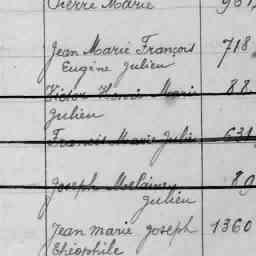 Pierre Marie 961
Jean Marie François 718
Eugène Julien
Victor Henri Marie 88
Julien
Francis Marie Julie 631
Joseph 89
Julien
Jean Marie Joseph 1360
Théophile